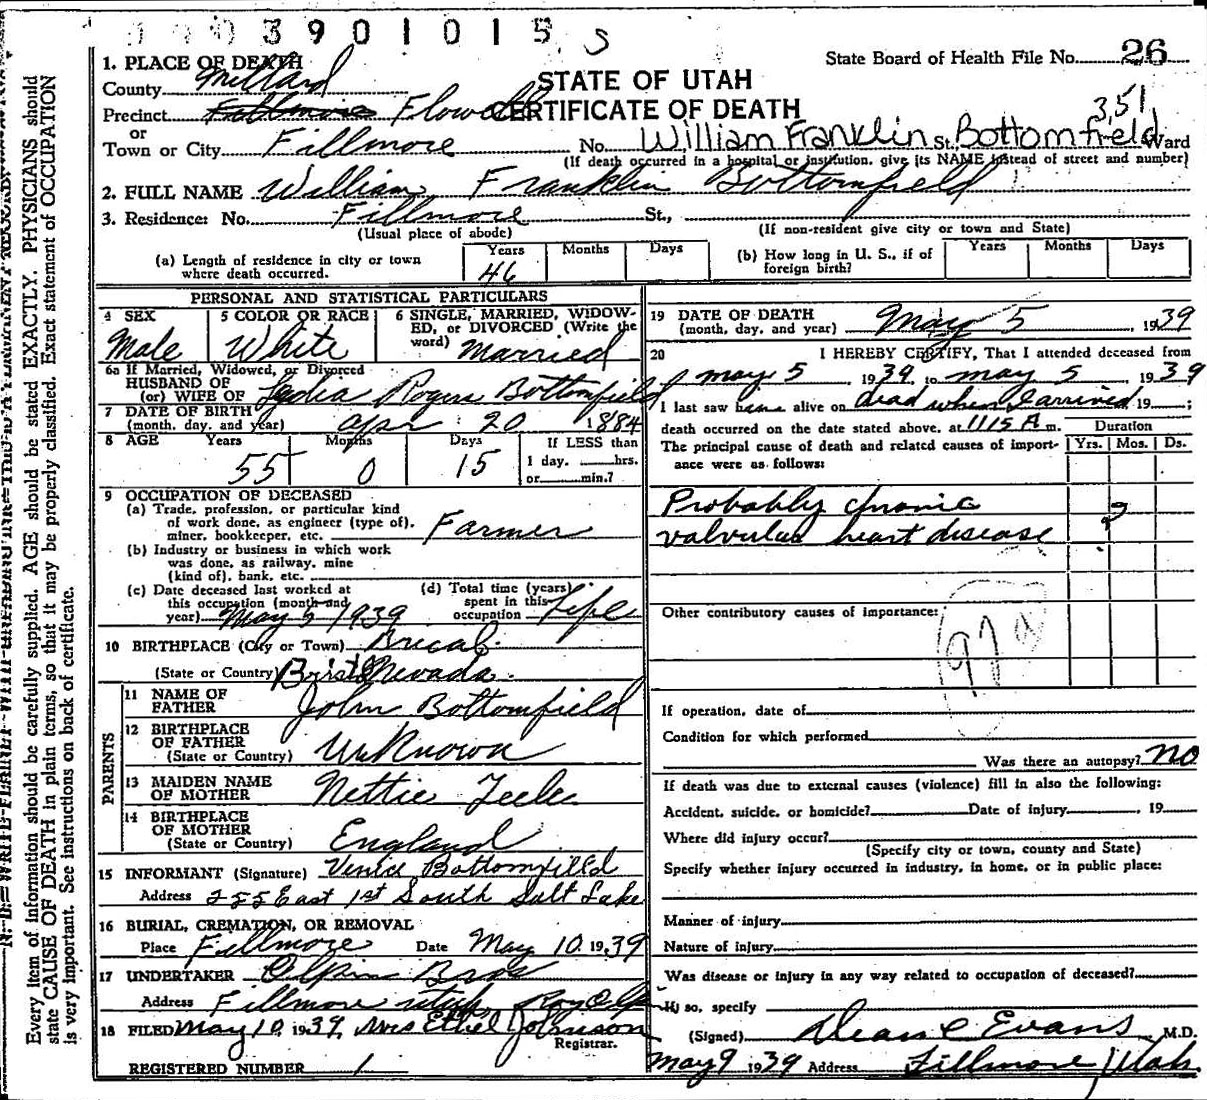 3901015 S
State Board of Health File No. 26
1. PLACE OF DEATH
County Millard
STATE OF UTAH
CERTIFICATE OF DEATH
Precinct Fillmore Flowell
351
or
Town or City Fillmore No. William Franklin St. Bottomfield Ward
(If death occurred in a hospital or institution, give its NAME instead of street and number)
2. FULL NAME William Franklin Bottomfield
3. Residence: No. Fillmore St.,
(Usual place of abode) (If non-resident give city or town and State)
(a) Length of residence in city or town where death occurred. Years 46 Months Days
(b) How long in U. S., if of foreign birth? Years Months Days
PERSONAL AND STATISTICAL PARTICULARS
4 SEX Male
5 COLOR OR RACE White
6 SINGLE, MARRIED, WIDOWED, or DIVORCED (Write the word) Married
6a If Married, Widowed, or Divorced
HUSBAND OF
(or) WIFE OF Lydia Rogers Bottomfield
7 DATE OF BIRTH
(month, day, and year) Apr 20 1884
8 AGE Years 55 Months 0 Days 15 If LESS than
1 day, hrs.
or min.?
9 OCCUPATION OF DECEASED
(a) Trade, profession, or particular kind
of work done, as engineer (type of),
miner, bookkeeper, etc. Farmer
(b) Industry or business in which work
was done, as railway, mine
(kind of), bank, etc.
(c) Date deceased last worked at
this occupation (month and
year) May 5 1939
(d) Total time (years)
spent in this
occupation Life
10 BIRTHPLACE (City or Town)
(State or Country) Nevada
PARENTS
11 NAME OF
FATHER John Bottomfield
12 BIRTHPLACE
OF FATHER
(State or Country) Unknown
13 MAIDEN NAME
OF MOTHER Nettie
14 BIRTHPLACE
OF MOTHER
(State or Country) England
15 INFORMANT (Signature) Venice Bottomfield
Address 255 East 1st South Salt Lake
16 BURIAL, CREMATION, OR REMOVAL
Place Fillmore Date May 10 1939
17 UNDERTAKER Olpin Bros
Address Fillmore Utah Roy Olpin
18 FILED May 10, 1939, Mrs Ethel Johnson
Registrar.
REGISTERED NUMBER 1
19 DATE OF DEATH
(month, day, and year) May 5, 1939
20 I HEREBY CERTIFY, That I attended deceased from
May 5 1939 to May 5 1939
I last saw him alive on dead when I arrived, 19 ;
death occurred on the date stated above, at 1115 A m.
The principal cause of death and related causes of importance were as follows:
Duration
Yrs. Mos. Ds.
Probably chronic ?
valvular heart disease
Other contributory causes of importance:
97a
If operation, date of
Condition for which performed
Was there an autopsy? no
If death was due to external causes (violence) fill in also the following:
Accident, suicide, or homicide? Date of injury , 19
Where did injury occur?
(Specify city or town, county and State)
Specify whether injury occurred in industry, in home, or in public place:
Manner of injury
Nature of injury
Was disease or injury in any way related to occupation of deceased?
If so, specify
(Signed) Dean C Evans M.D.
May 9 1939 Address Fillmore, Utah.
Every item of information should be carefully supplied. AGE should be stated EXACTLY. PHYSICIANS should
state CAUSE OF DEATH in plain terms, so that it may be properly classified. Exact statement of OCCUPATION
is very important. See instructions on back of certificate.